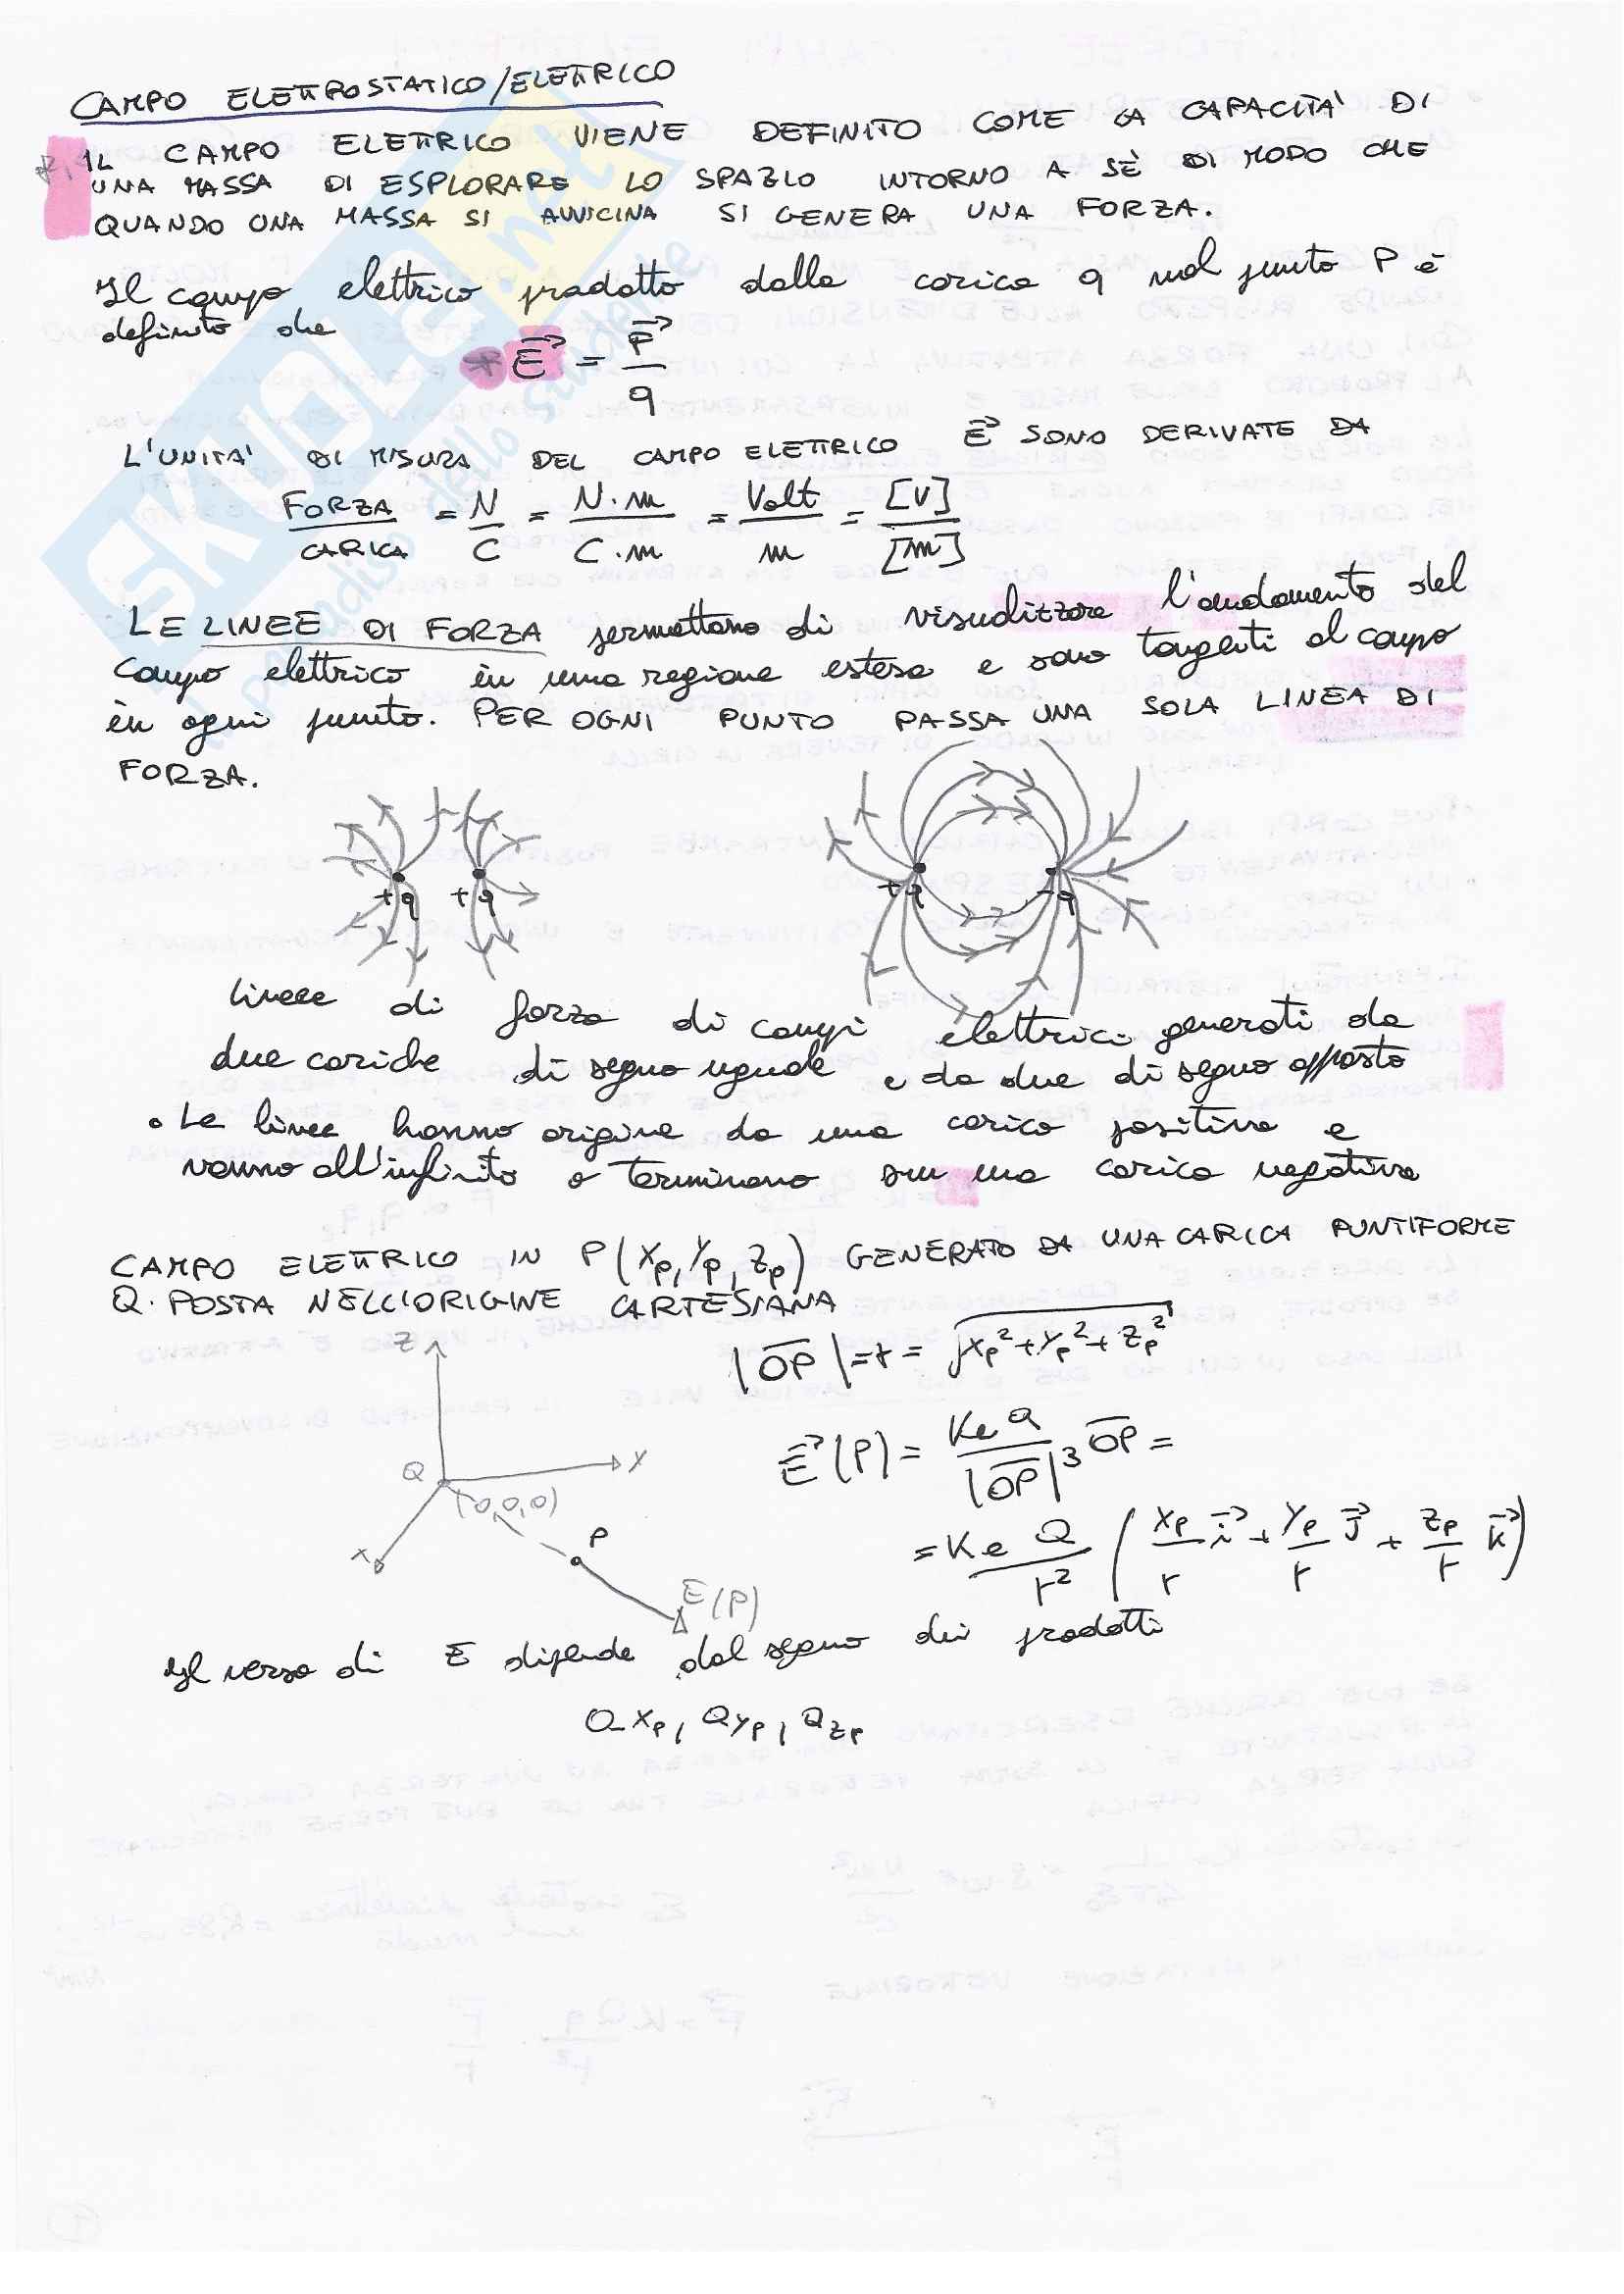 CAMPO ELETTROSTATICO/ELETTRICO
IL CAMPO ELETTRICO VIENE DEFINITO COME LA CAPACITA' DI
UNA MASSA DI ESPLORARE LO SPAZIO INTORNO A SÈ DI MODO CHE
QUANDO UNA MASSA SI AVVICINA SI GENERA UNA FORZA.
Il campo elettrico prodotto dalla carica q nel punto P è
definito che
* E⃗ = F⃗ / q
L'UNITA' DI MISURA DEL CAMPO ELETTRICO E⃗ SONO DERIVATE DA
FORZA/CARICA = N/C = N·m/C·m = Volt/m = [V]/[m]
LE LINEE DI FORZA permettono di visualizzare l'andamento del
campo elettrico in una regione estesa e sono tangenti al campo
in ogni punto. PER OGNI PUNTO PASSA UNA SOLA LINEA DI
FORZA.
+q +q +q -q
linee di forza di campi elettrici generati da
due cariche di segno uguale e da due di segno opposto
• Le linee hanno origine da una carica positiva e
vanno all'infinito o terminano su una carica negativa
CAMPO ELETTRICO IN P(Xp, Yp, Zp) GENERATO DA UNA CARICA PUNTIFORME
Q POSTA NELL'ORIGINE CARTESIANA
|OP| = r = √(Xp² + Yp² + Zp²)
Z
E⃗(P) = Ke Q / |OP|³ OP =
Q
Y
(0,0,0)
= Ke Q / r² (Xp/r i⃗ + Yp/r J⃗ + Zp/r k⃗)
X
P
E(P)
Il verso di E dipende dal segno dei prodotti
QXp, QYp, QZp
SKUOLA.net
il paradiso dello studente